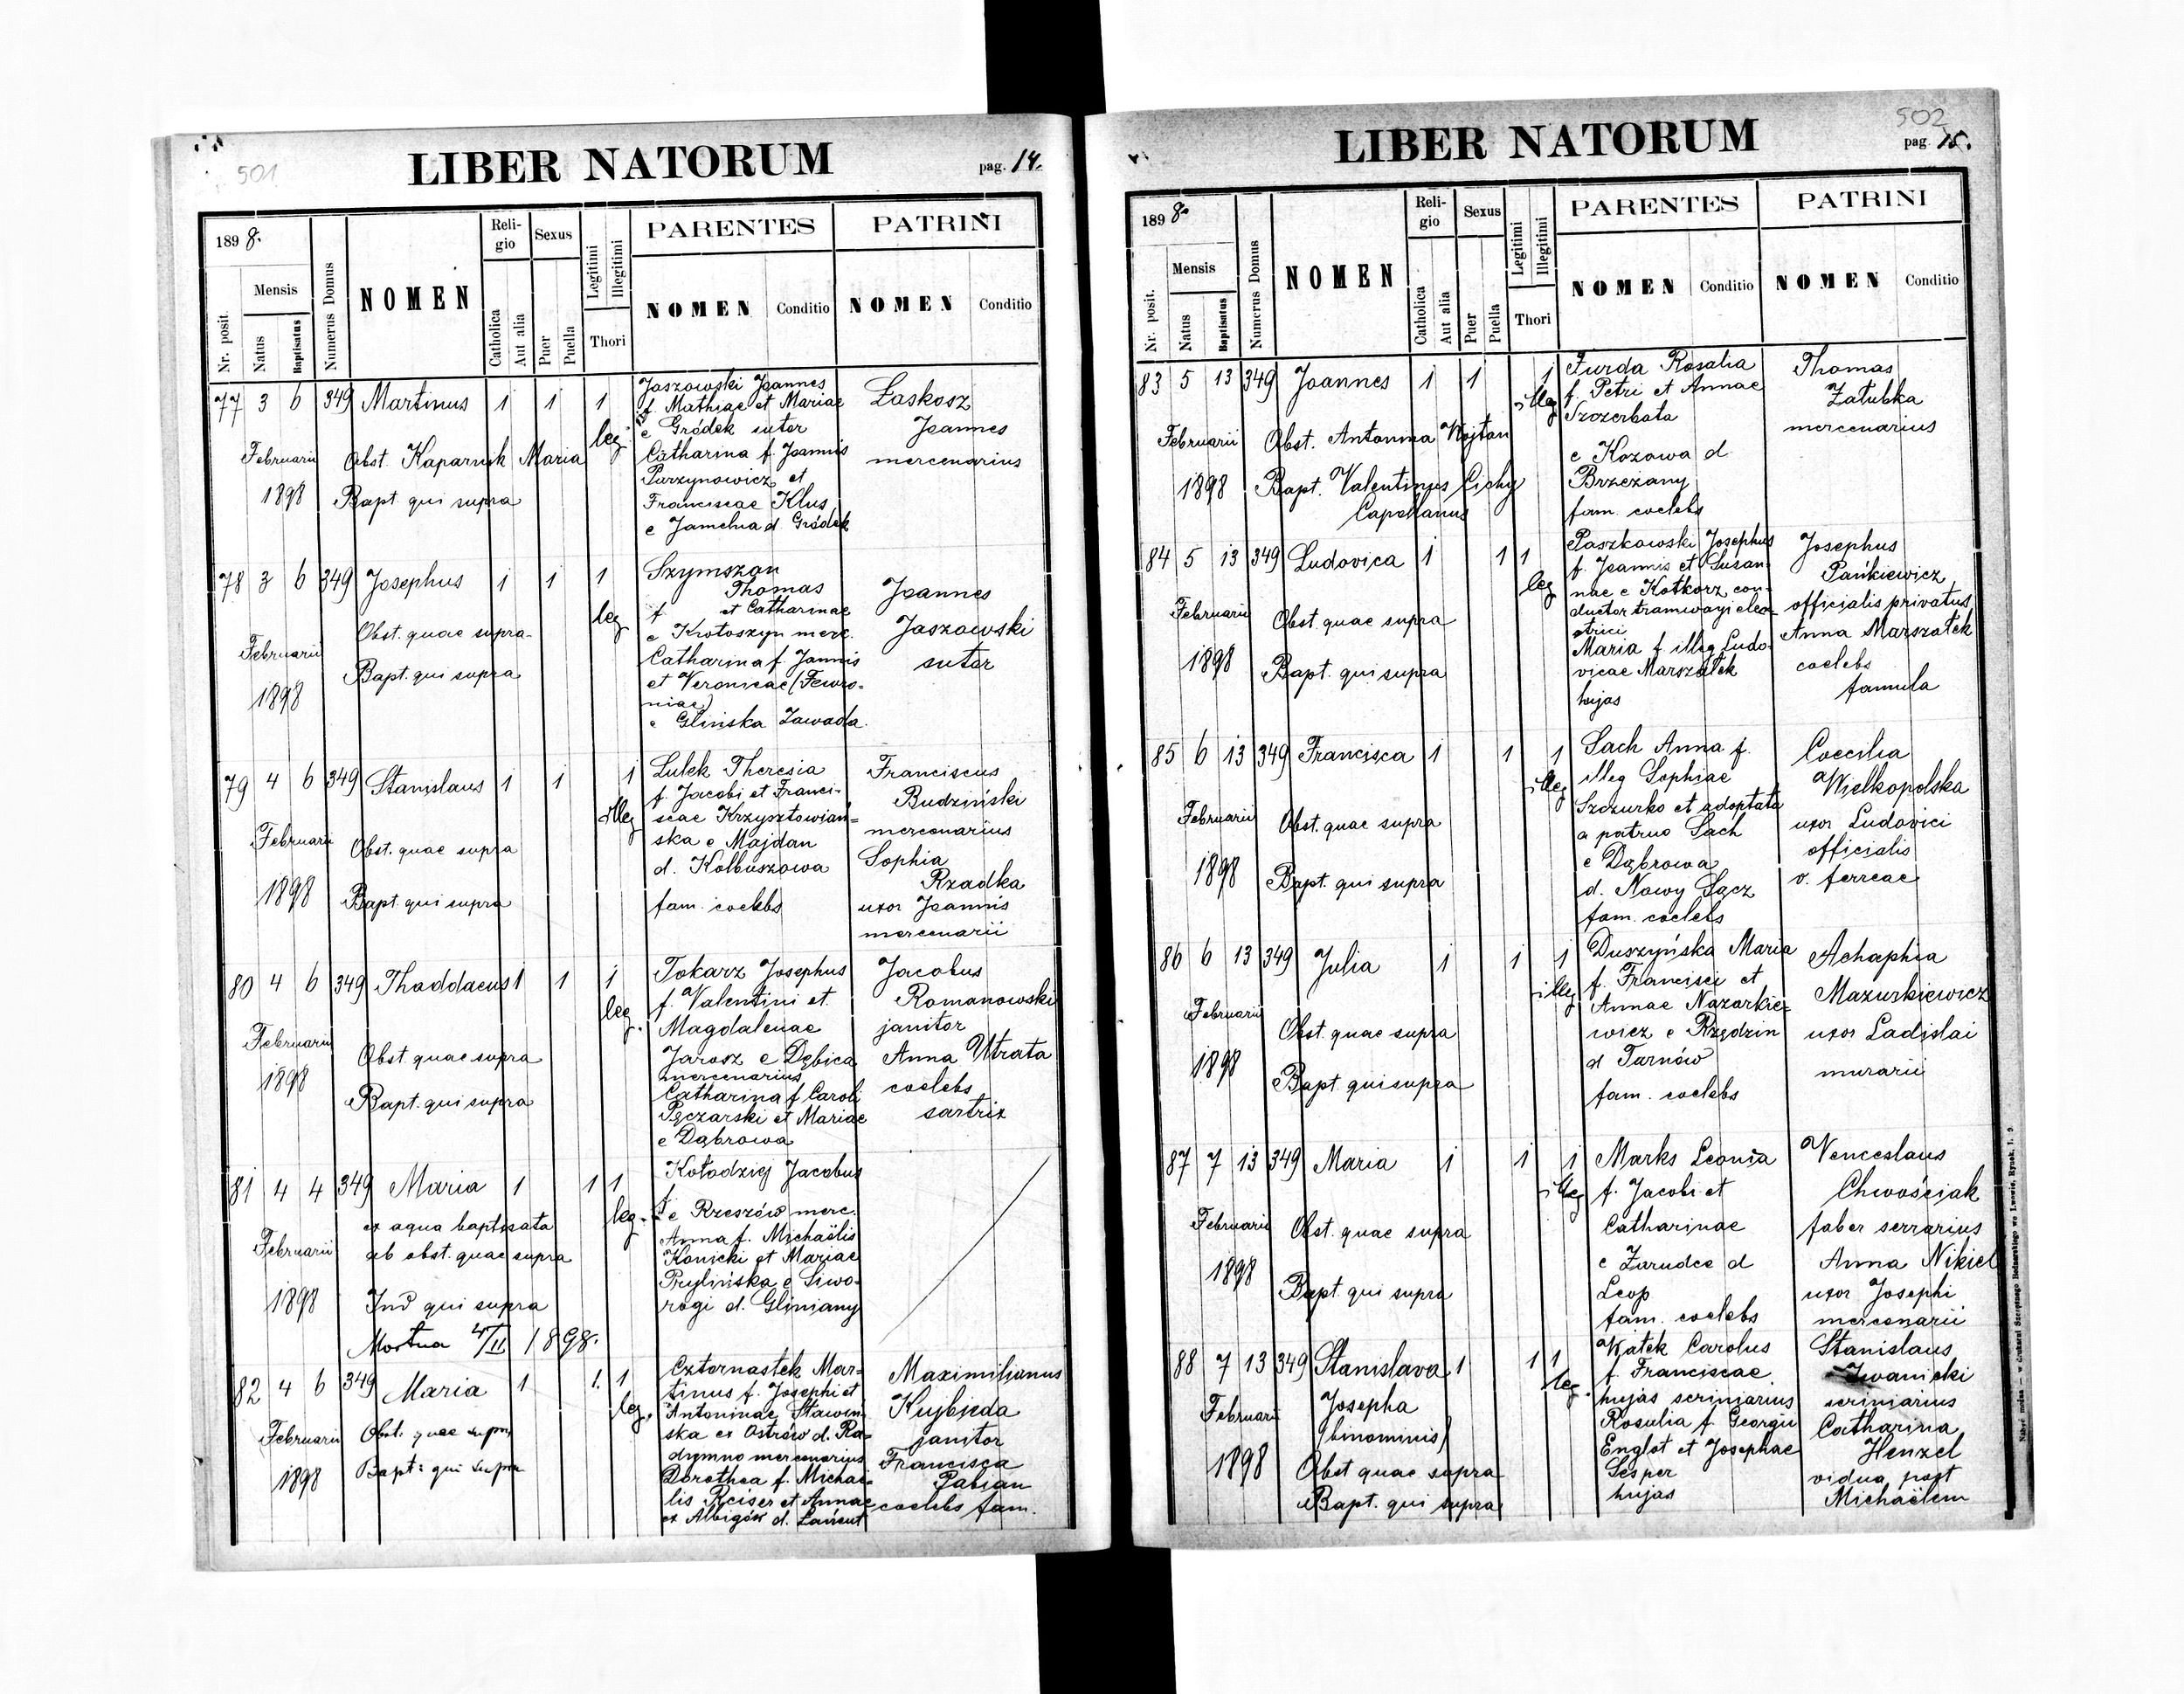 501
LIBER NATORUM
pag. 14.
1898.
Mensis
Nr. posit.
Natus
Baptisatus
Numerus Domus
NOMEN
Religio
Catholica
Aut alia
Sexus
Puer
Puella
Legitimi
Illegitimi
Thori
PARENTES
NOMEN
Conditio
PATRINI
NOMEN
Conditio
77 3 6 349 Martinus 1 1 1
leg.
Februarii
1898
Obst. Kaparnik Maria
Bapt qui supra
Jaszowski Joannes
f. Mathiae et Mariae
e Gródek sutor
Catharina f. Joannis
Purzynowicz et
Franciscae Klus
e Jamelna d Gródek
Łaskosz
Joannes
mercenarius
78 3 6 349 Josephus 1 1 1
leg
Februarii
1898
Obst. quae supra
Bapt. qui supra
Szymszon
Thomas
f et Catharinae
e Krotoszyn merc.
Catharina f. Joannis
et Veronicae (Fewro-
niae)
e Glińska Zawada.
Joannes
Jaszowski
sutor
79 4 6 349 Stanislaus 1 1 1
illeg
Februarii
1898
Obst. quae supra
Bapt. qui supra
Lulek Theresia
f. Jacobi et Franci-
scae Krzysztowian-
ska e Majdan
d. Kolbuszowa
fam. coelebs
Franciscus
Budziński
mercenarius
Sophia
Rzadka
uxor Joannis
mercenarii
80 4 6 349 Thaddaeus 1 1 1
leg.
Februarii
1898
Obst quae supra
Bapt. qui supra
Tokarz Josephus
f. Valentini et
Magdalenae
Jarosz e Dębica
mercenarius
Catharina f Caroli
Pęczarski et Mariae
e Dąbrowa
Jacobus
Romanowski
janitor
Anna Utrata
coelebs
sartrix
81 4 4 349 Maria 1 1 1
leg.
Februarii
1898
ex aqua baptisata
ab obst. quae supra
Ind qui supra
Mortua 4/II 1898.
Kołodziej Jacobus
f.
e Rzeszów merc.
Anna f. Michaëlis
Konicki et Mariae
Prylińska e Siwo-
rogi d. Gliniany
82 4 6 349 Maria 1 1. 1
leg.
Februarii
1898
Obst. quae supra
Bapt: qui supra
Czternastek Mar-
tinus f. Josephi et
Antoninae Stawiń-
ska ex Ostrów d. Ra-
dymno mercenarius
Dorothea f. Michae-
lis Reiser et Annae
ex Albigów d. Łańcut
Maximilianus
Kujbieda
janitor
Francisca
Pabian
coelebs fam.
502
LIBER NATORUM
pag. 15.
1898.
Mensis
Nr. posit.
Natus
Baptisatus
Numerus Domus
NOMEN
Religio
Catholica
Aut alia
Sexus
Puer
Puella
Legitimi
Illegitimi
Thori
PARENTES
NOMEN
Conditio
PATRINI
NOMEN
Conditio
83 5 13 349 Joannes 1 1 1
illeg
Februarii
1898
Obst. Antonina Wojtan
Bapt. Valentinus Cichy
Capellanus
Furda Rosalia
f. Petri et Annae
Szczerbata
e Kozowa d
Brzeżany
fam. coelebs
Thomas
Załubka
mercenarius
84 5 13 349 Ludovica 1 1 1
leg
Februarii
1898
Obst. quae supra
Bapt. qui supra
Paszkowski Josephus
f. Joannis et Susan-
nae e Kotkorz con-
ductor tramwayi elec-
trici
Maria f illeg Ludo-
vicae Marszałek
hujas
Josephus
Pankiewicz
officialis privatus
Anna Marszałek
coelebs
famula
85 6 13 349 Francisca 1 1 1
illeg
Februarii
1898
Obst. quae supra
Bapt. qui supra
Sach Anna f.
illeg Sophiae
Szczurko et adoptata
a patruo Sach
e Dąbrowa
d. Nowy Sącz
fam. coelebs
Coecilia
Wielkopolska
uxor Ludovici
officialis
v. ferreae
86 6 13 349 Julia 1 1 1
illeg
Februarii
1898
Obst. quae supra
Bapt qui supra
Duszyńska Maria
f. Francisci et
Annae Nazarkie-
wicz e Rzędzin
d Tarnów
fam. coelebs
Achaphia
Mazurkiewicz
uxor Ladislai
murarii
87 7 13 349 Maria 1 1 1
illeg
Februarii
1898
Obst. quae supra
Bapt. qui supra
Marks Leonia
f. Jacobi et
Catharinae
e Zarudce d
Leop
fam. coelebs
Venceslaus
Chwościak
faber serrarius
Anna Nikiel
uxor Josephi
mercenarii
88 7 13 349 Stanislava 1 1 1
leg.
Februarii
1898
Josepha
(binominis)
Obst quae supra
Bapt. qui supra
Wątek Carolus
f. Franciscae
hujas scriniarius
Rosalia f. Georgii
Englot et Josephae
Sesper
hujas
Stanislaus
Iwanicki
scriniarius
Catharina
Henzel
vidua post
Michaëlem